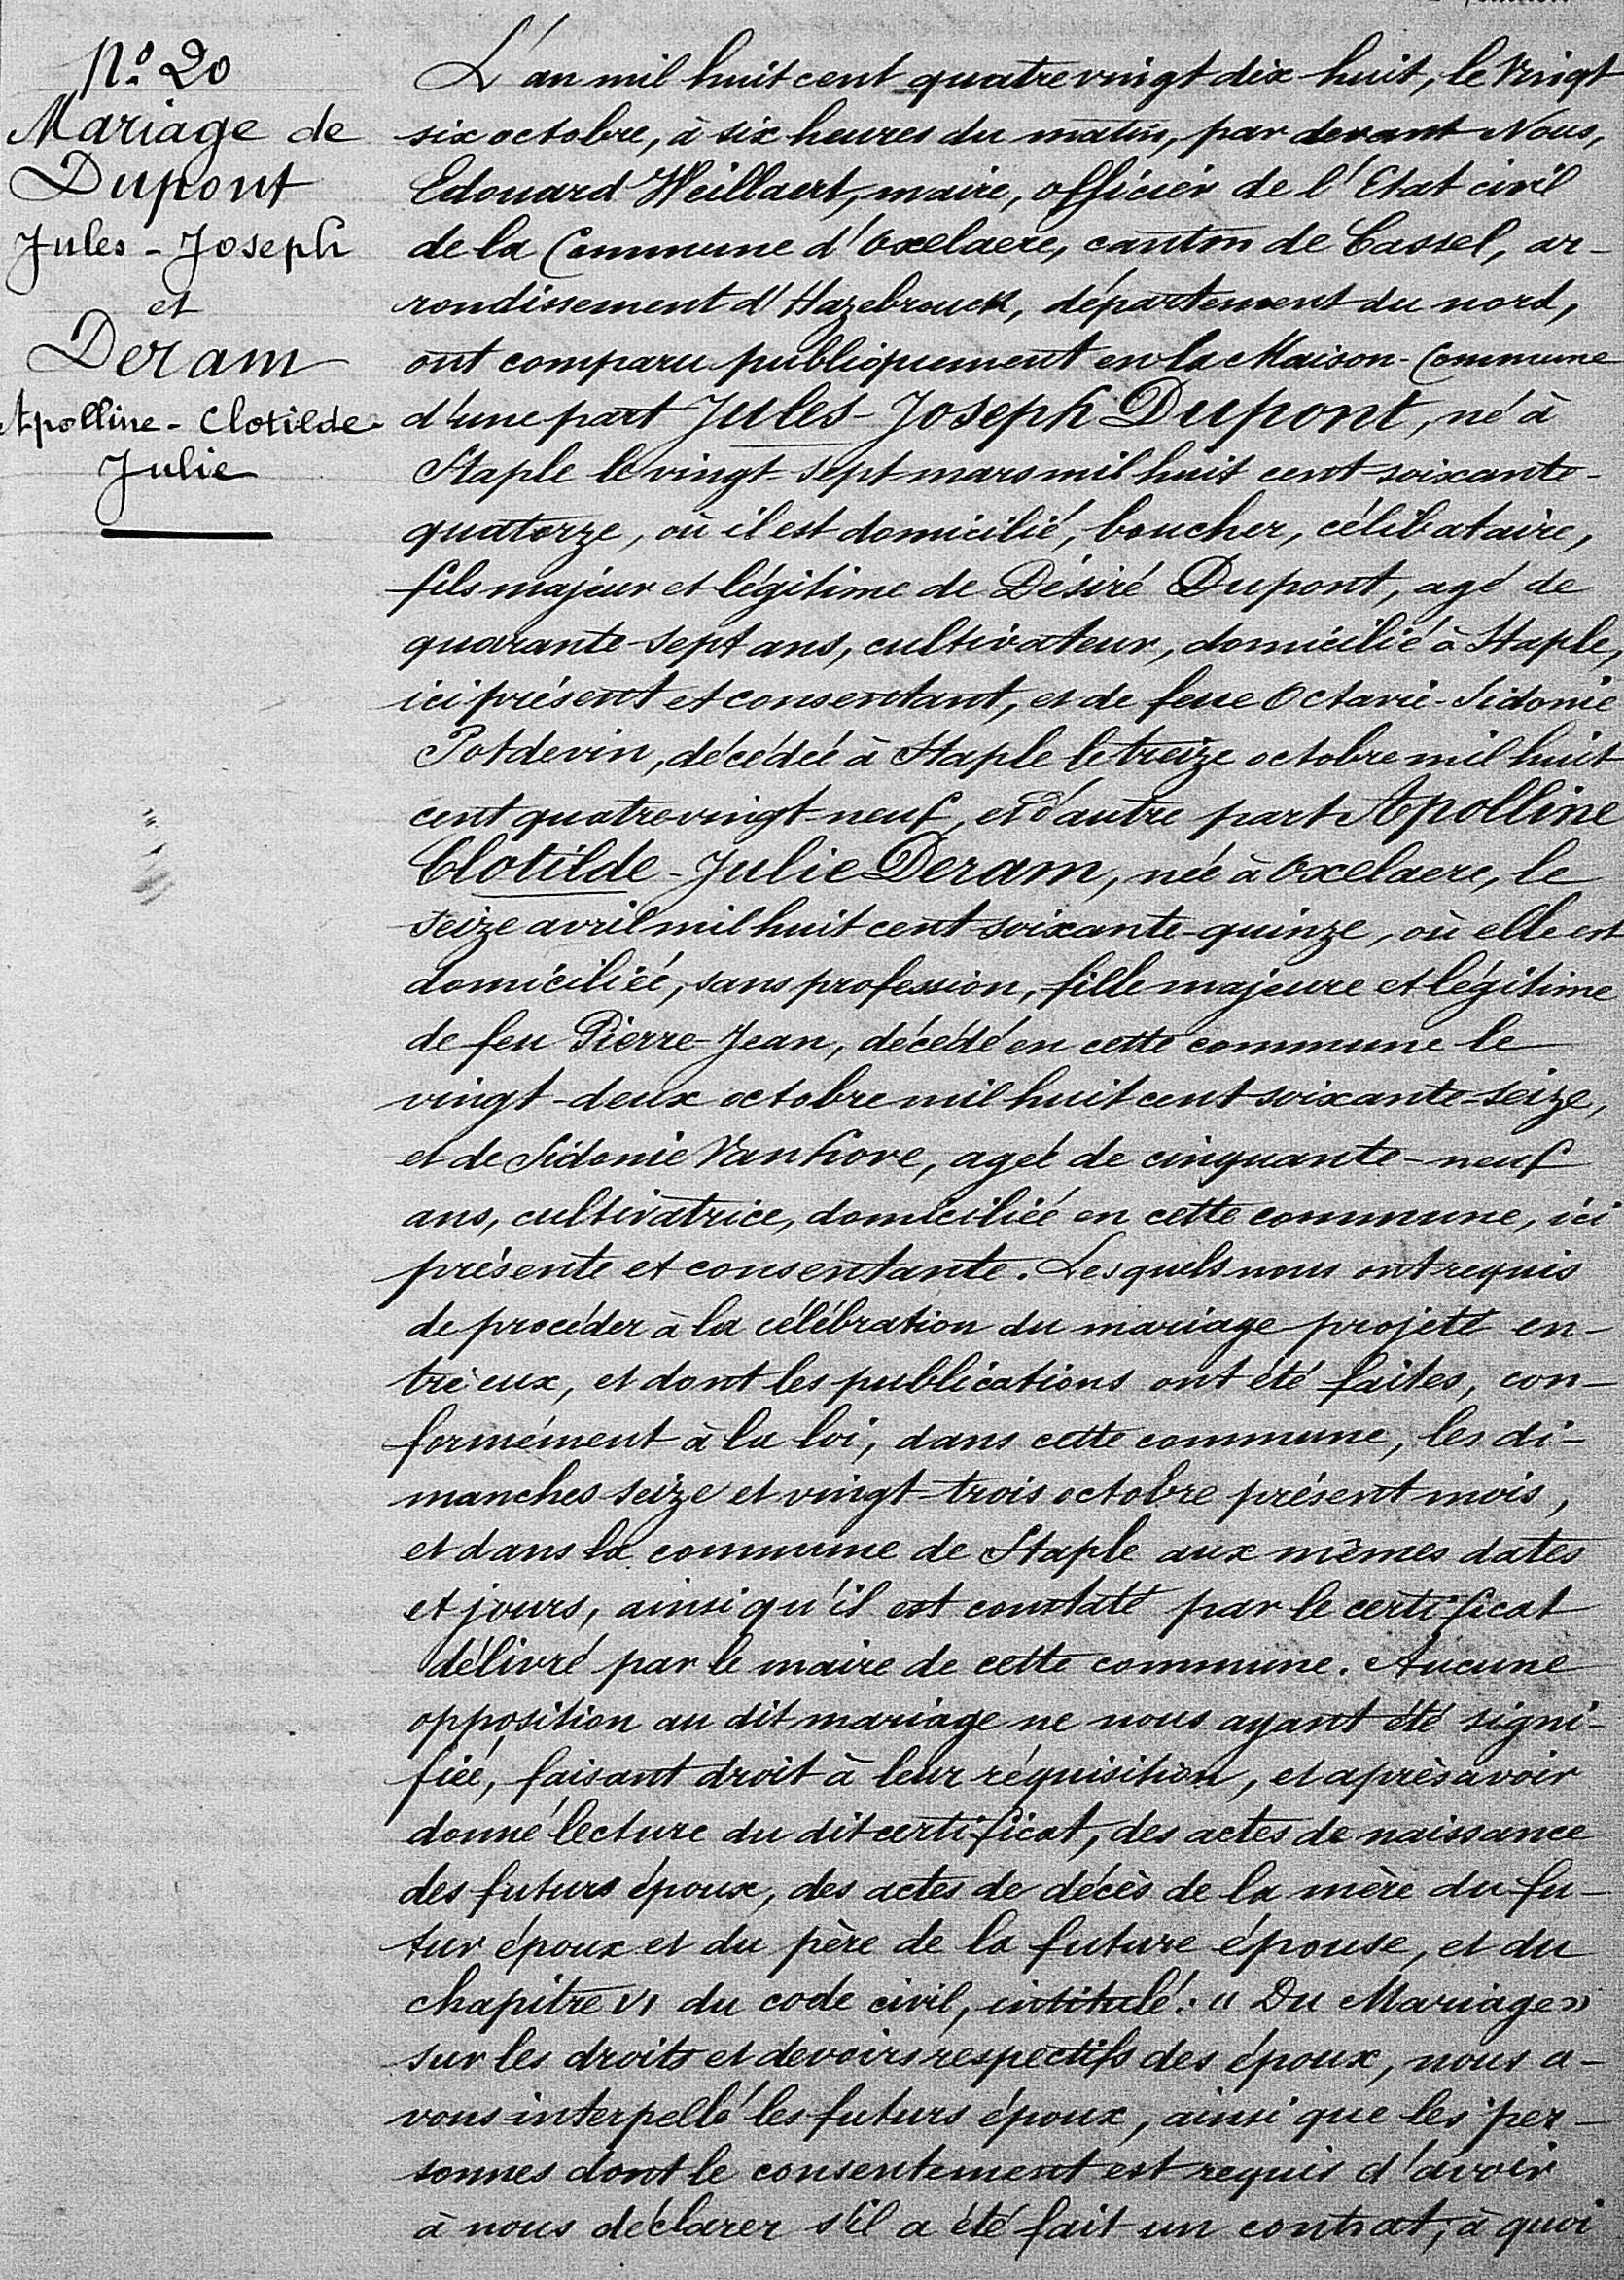 N° 20
Mariage de
Dupont
Jules - Joseph
et
Deram
Apolline - Clotilde -
Julie
L'an mil huit cent quatre vingt dix-huit, le vingt
six octobre, à six heures du matin, par devant Nous,
Edouard Weillaert, maire, officier de l'Etat civil
de la Commune d'Oxelaere, canton de Cassel, ar-
rondissement d'Hazebrouck, département du nord,
ont comparu publiquement en la Maison-Commune
d'une part Jules-Joseph Dupont, né à
Staple le vingt-sept mars mil huit cent soixante-
quatorze, où il est domicilié, boucher, célibataire,
fils majeur et légitime de Désiré Dupont, agé de
quarante-sept ans, cultivateur, domicilié à Staple,
ici présent et consentant, et de feue Octavie-Sidonie
Potdevin, décédée à Staple le treize octobre mil huit
cent quatre vingt-neuf, et d'autre part Apolline
Clotilde-Julie Deram, née à Oxelaere, le
seize avril mil huit cent soixante-quinze, où elle est
domiciliée, sans profession, fille majeure et légitime
de feu Pierre-Jean, décédé en cette commune le
vingt-deux octobre mil huit cent soixante-seize,
et de Sidonie Vanhove, ageé de cinquante-neuf
ans, cultivatrice, domiciliée en cette commune, ici
présente et consentante. Lesquels nous ont requis
de procéder à la célébration du mariage projeté en-
tre eux, et dont les publications ont été faites, con-
formément à la loi, dans cette commune, les di-
manches seize et vingt-trois octobre présent mois,
et dans la commune de Staple aux mêmes dates
et jours, ainsi qu'il est constaté par le certificat
délivré par le maire de cette commune. Aucune
opposition au dit mariage ne nous ayant été signi-
fiée, faisant droit à leur réquisition, et après avoir
donné lecture du dit certificat, des actes de naissance
des futurs époux, des actes de décès de la mère du fu-
tur époux et du père de la future épouse, et du
chapitre VI du code civil, intitulé : « Du Mariage »
sur les droits et devoirs respectifs des époux, nous a-
vons interpellé les futurs époux, ainsi que les per-
sonnes dont le consentement est requis d'avoir
à nous déclarer s'il a été fait un contrat, à quoi